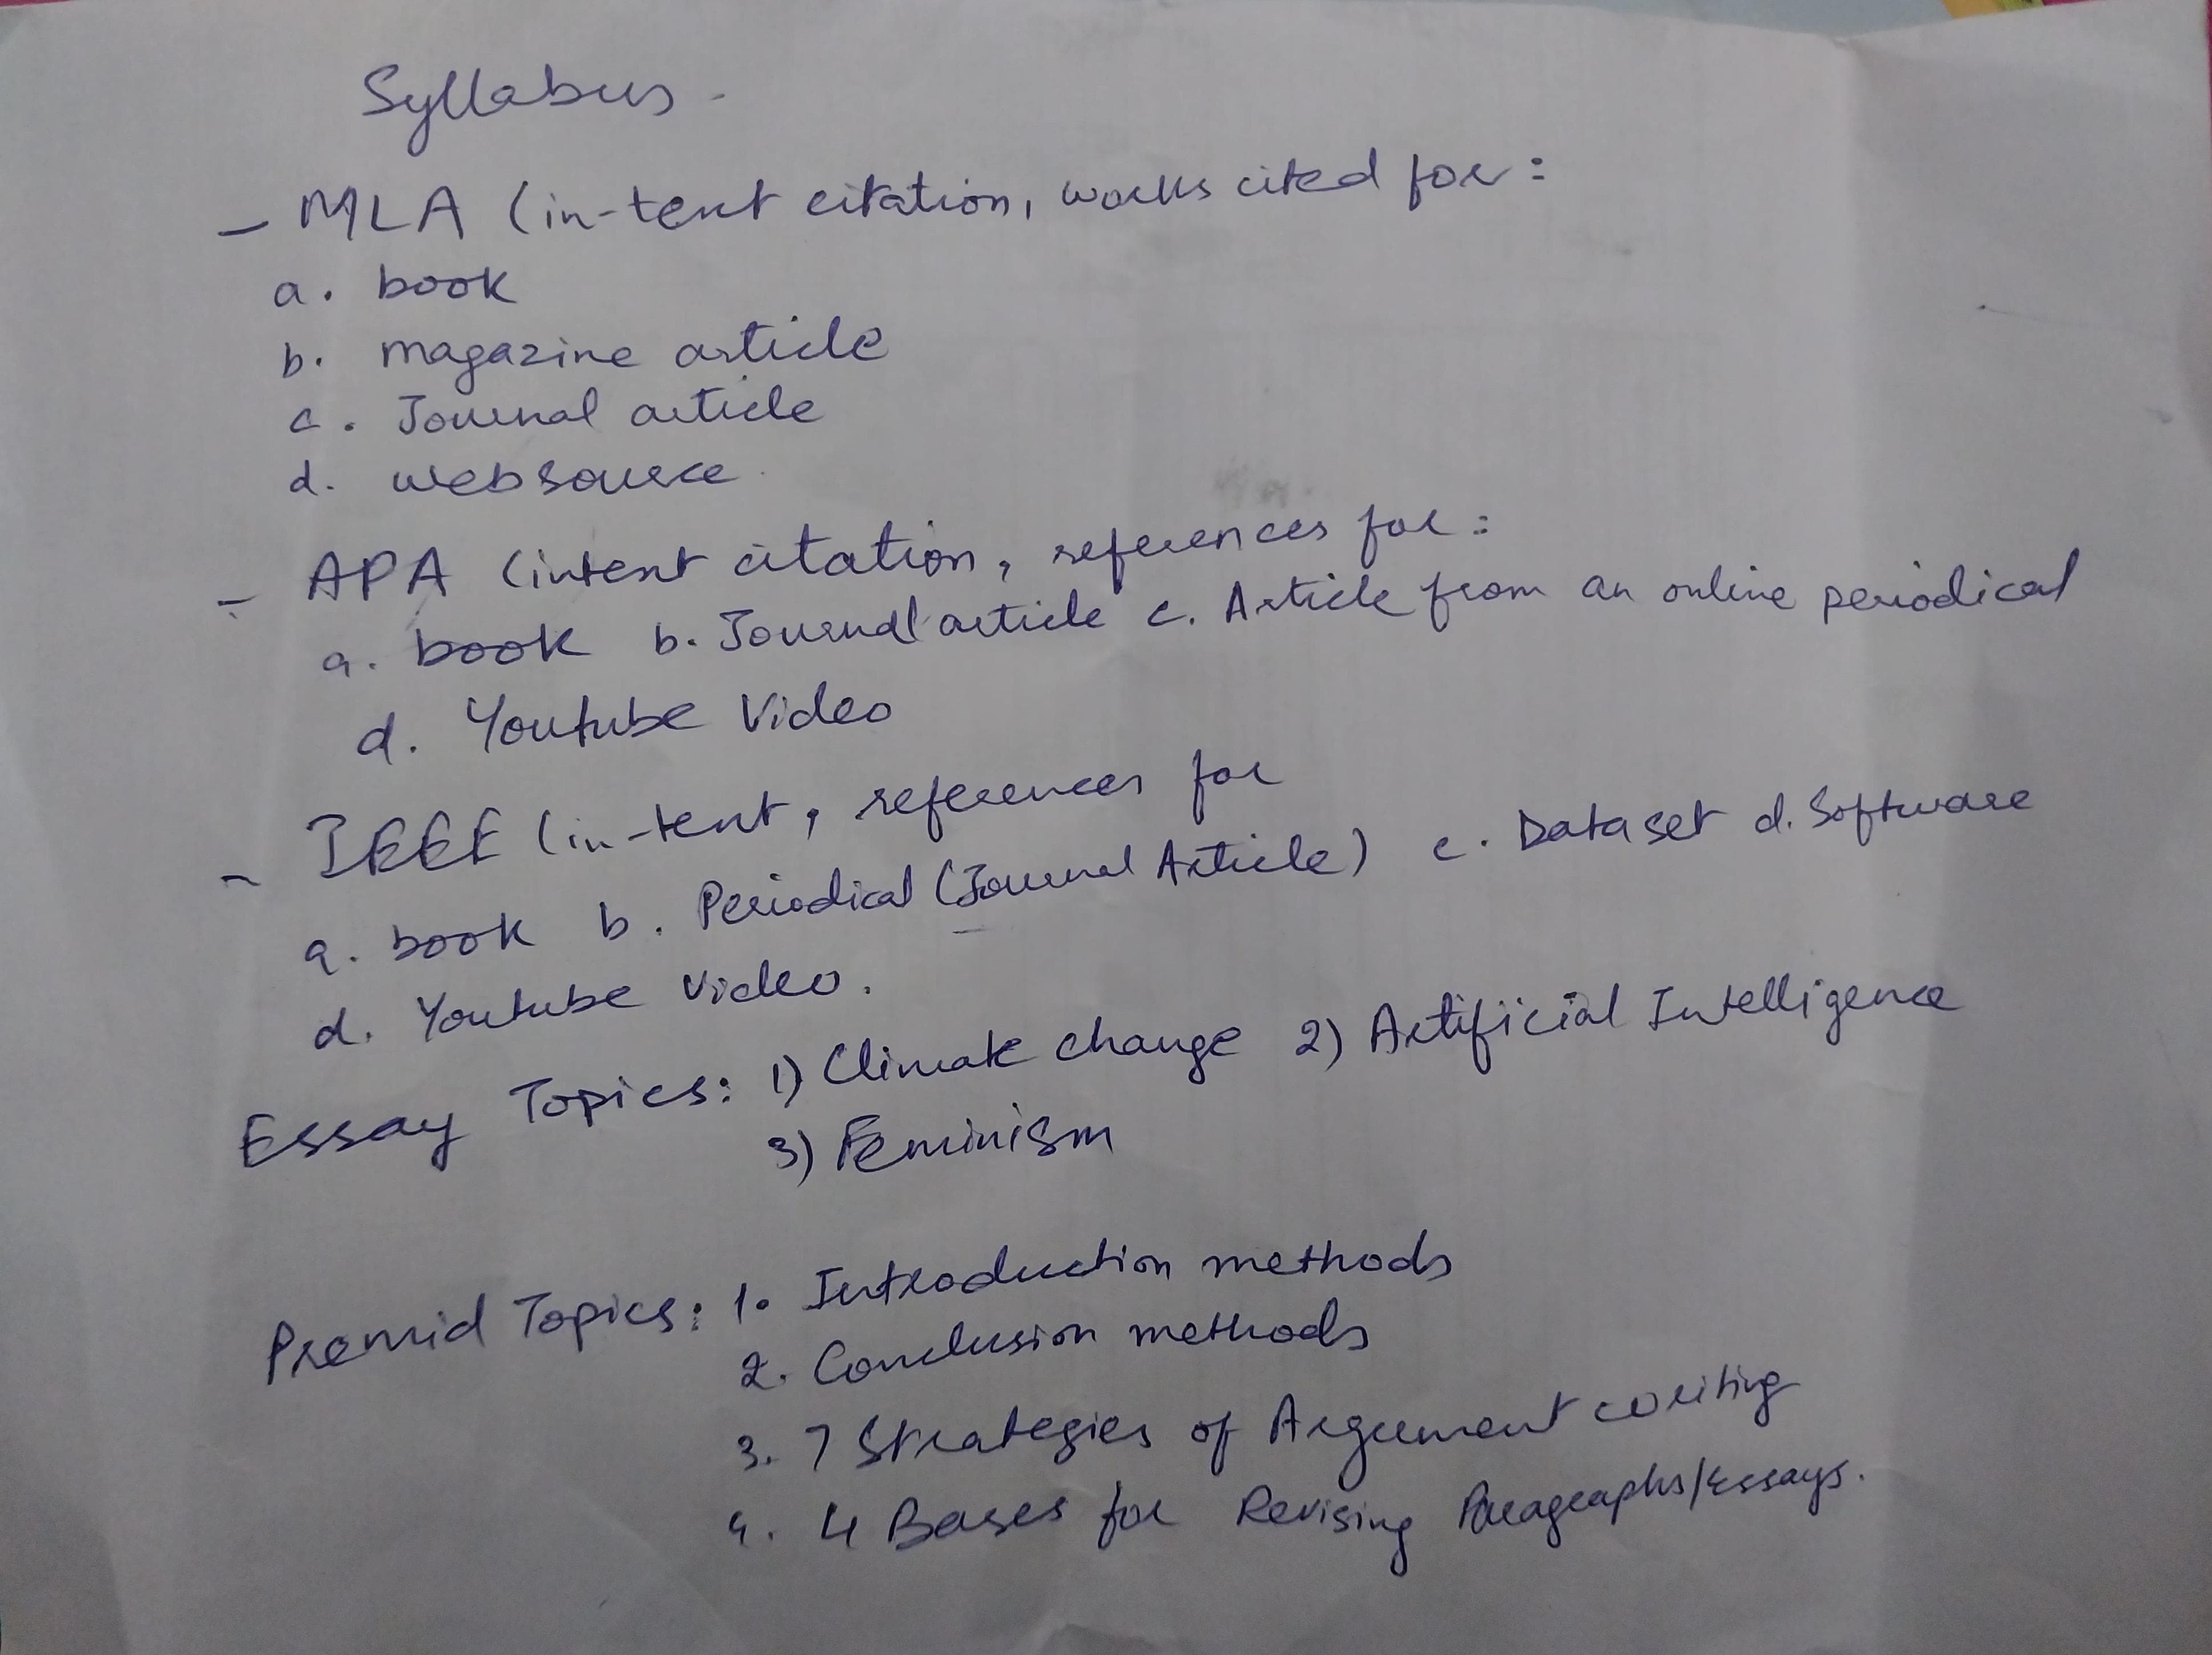 Syllabus -
- MLA (in-text citation, works cited for:
a. book
b. magazine article
c. Journal article
d. websource
- APA (intext citation, references for:
a. book b. Journal article c. Article from an online periodical
d. Youtube Video
- IEEE (in-text, references for
a. book b. Periodical (Journal Article) c. Dataset d. Software
d. Youtube Video.
Essay Topics: 1) Climate change 2) Artificial Intelligence
3) Feminism
Premid Topics: 1. Introduction methods
2. Conclusion methods
3. 7 Strategies of Argument writing
4. 4 Bases for Revising Paragraphs/Essays.